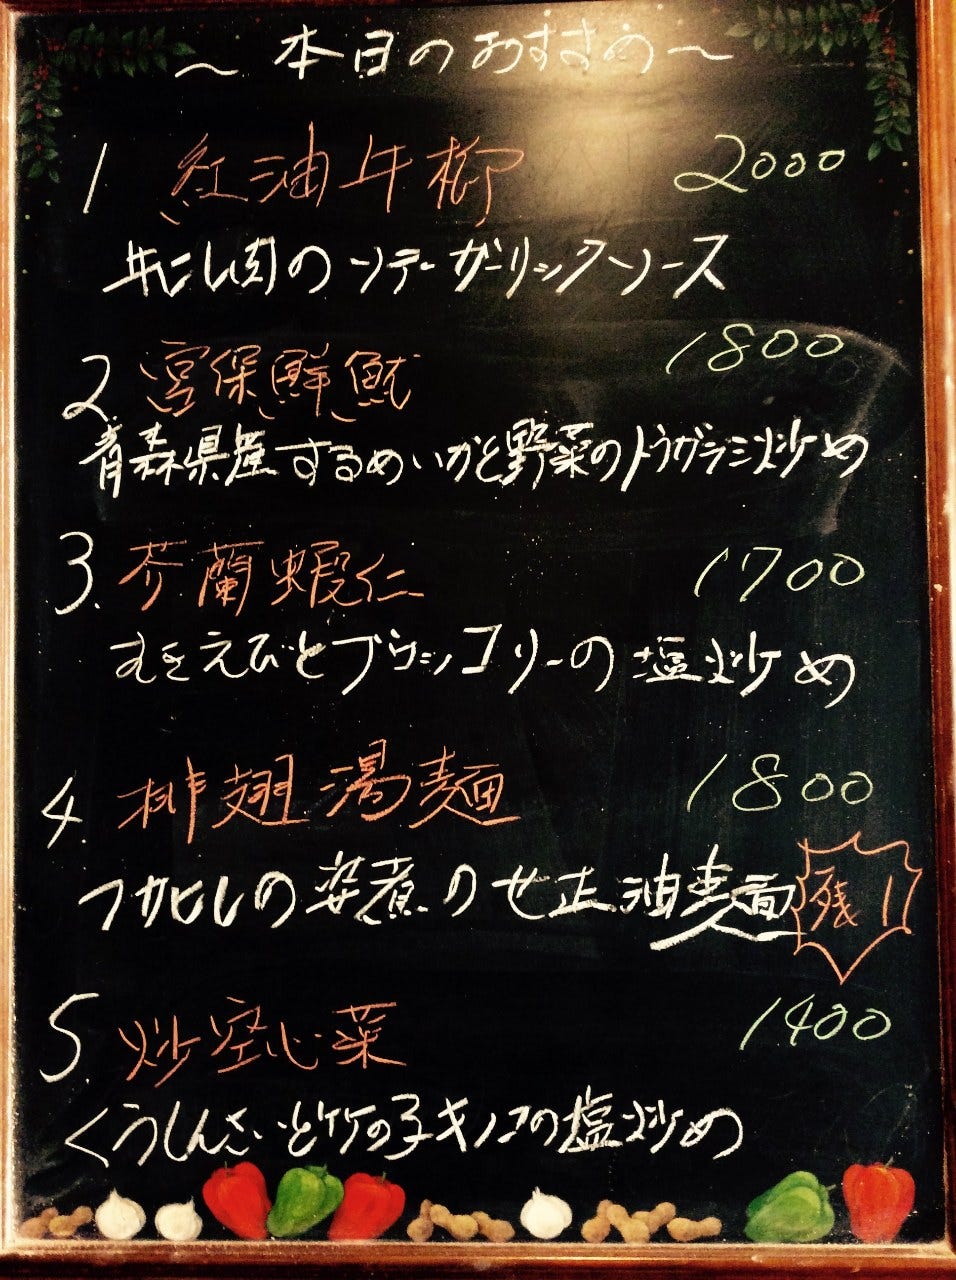 ～本日のおすすめ～
1 紅油牛柳 2000
牛にし肉のソテーガーリックソース
2. 宮保鮮魷 1800
青森県産するめいかと野菜のトウガラシ炒め
3. 芥蘭蝦仁 1700
むきえびとブロッコリーの塩炒め
4. 排翅湯麺 1800
フカヒレの姿煮のせ正油麺 残り1
5. 炒空心菜 1400
くうしんさいと竹の子キノコの塩炒め